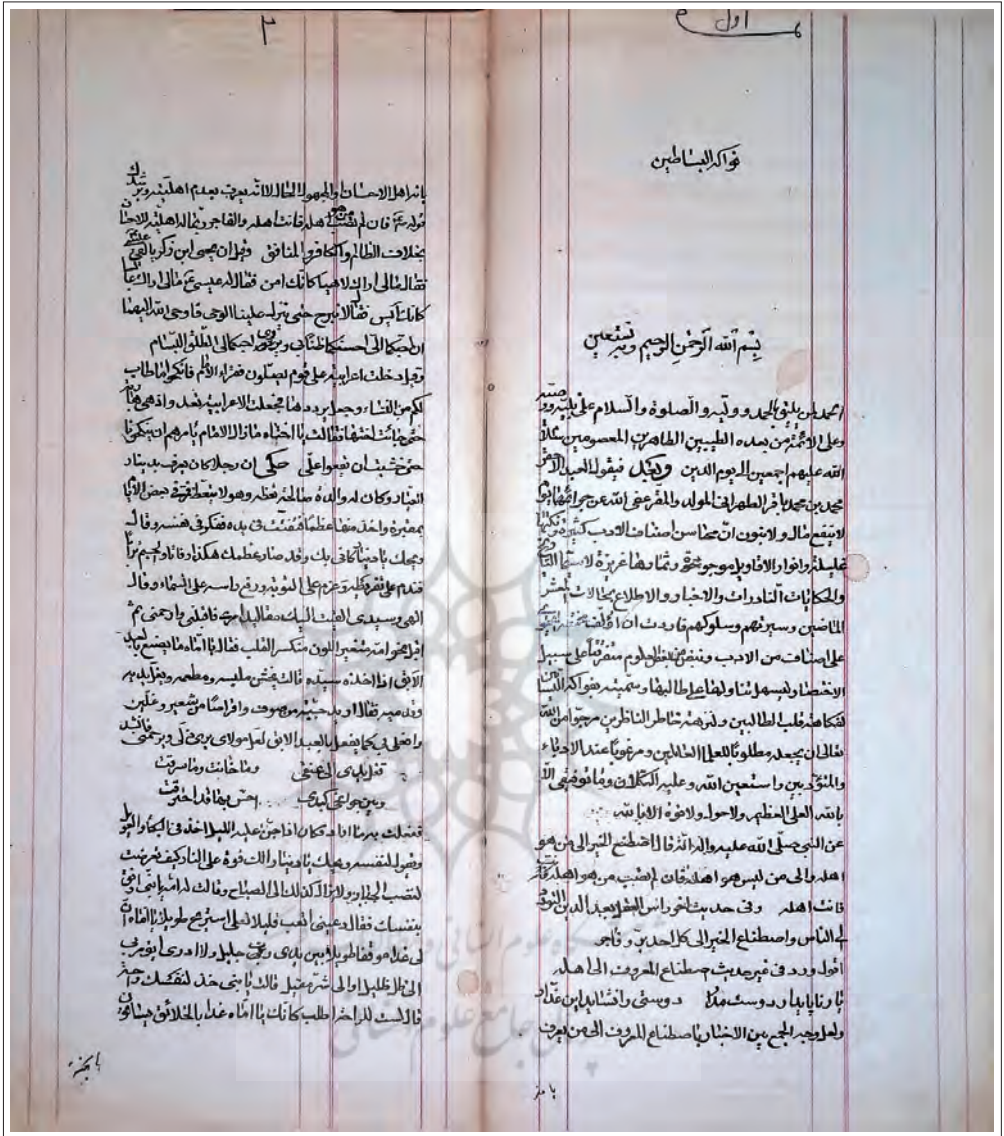 اول
فواكه البساطين
بسم الله الرحمن الرحيم وبه نستعين
الحمد لمن يليق بالحمد ووليه والصلوة والسلام على نبيه ووصيه
وعلى الائمة من بعده الطيبين الطاهرين المعصومين سلام
الله عليهم اجمعين الى يوم الدين وبعد فيقول العبد الاحقر
محمد بن محمد باقر الطهراني المولد والمقر عفى الله عن جرائمهما يوم
لا ينفع مال ولا بنون ان محاسن اصناف الادب كثيرة
وانوار الاقاويل موجودة وثمارها غزيرة لا سيما
والحكايات النادرات والاخبار والاطلاع بحالات
الماضين وسيرتهم وسلوكهم فاردت ان اؤلف مختصرا
على اصناف من الادب ونبض من العلوم متفرقا على سبيل
الاختصار ليسهل تناولها على طالبيها وسميته بفواكه البساطين
لتفكاهة قلب الطالبين ولنزهة خاطر الناظرين مرجوا من الله
تعالى ان يجعله مطلوبا للعلماء العاملين ومرغوبا عند الادباء
والمتؤدبين واستعين الله وعليه التكلان وما توفيقي الا
بالله العلي العظيم ولا حول ولا قوة الا بالله
عن النبي صلى الله عليه واله انه قال اصطنع الخير الى من هو
اهله والى من ليس هو اهله فان لم تصب من هو اهله
فانت اهله وفي حديث اخر راس العقل بعد الدين التودد
الى الناس واصطناع الخير الى كل احد بر وفاجر
اقول ورد في غير حديث اصطناع المعروف الى اهله
يار ناپايدار دوست مدار دوستى را نشايد اين غدار
ولعل وجه الجمع بين الاخبار باصطناع المعروف الى من يعرف
٢
بانه اهل الاحسان والمجهول الحال لا انه يعرف بعدم اهليته
قوله ع فان لم تصب من هو اهله فانت اهله والفاجر ربما له اهلية الاحسان
بخلاف الظالم والكافر والمنافق وقيل ان يحيى ابن زكريا لقي عيسى
فقال مالي اراك لاهيا كانك امن فقال له عيسى ع مالي اراك عابسا
كانك آيس فقالا لا نبرح حتى ينزل علينا الوحي فاوحى الله اليهما
ان احبكما الي احسنكما ظنا بي وروي احبكما الي الطلق البسام
وقيل دخلت اعرابية على قوم يصلون فقراء الامام فانكحوا ما طاب
لكم من النساء وجعل يرددها فجعلت الاعرابية تعد وهي هاربة
حتى جائت اختها فقالت يا اختاه مازال الامام يامرهم ان ينكحونا
حتى خشيت ان يقعوا علي حكى ان رجلا كان يعرف بدينار
العيار وكان له والدة صالحة تعظه وهو لا يتعظ فمر في بعض الايام
بمقبرة واخذ منها عظما فتفتت في يده ففكر في نفسه وقال
ويحك يا دينار كاني بك وقد صار عظمك هكذا رفاتا والجسم ترابا
فندم على تفريطه وعزم على التوبة ورفع راسه على السماء وقال
الهي وسيدي القيت اليك مقاليد امري فاقبلني وارحمني ثم
اقبل نحو امه متغير اللون منكسر القلب فقال يا اماه ما يصنع بالعبد
الآبق اذا اخذه سيده قالت يخشن ملبسه ومطعمه ويغل يديه
وقدميه فقال اريد جبة من صوف واقراصا من شعير وغلين
وافعلي بي كما يفعل بالعبد الابق لعل مولاي يرى ذلي ويرحمني
تغل يدي الى عنقي وما خانت وما سرقت
وبين جوانحي كبدي احس بها قد احترقت
ففعلت به ما اراد فكان اذا جن عليه الليل اخذ في البكاء والعويل
ويقول لنفسه ويحك يا دينار الك قوة على النار كيف تعرضت
لغضب الجبار ولا يزال كذلك الى الصباح وقالت له امه يا بني ارفق
بنفسك فقال دعيني اتعب قليلا لعلي استريح طويلا يا اماه ان
لي غدا موقفا طويلا بين يدي رب جليل ولا ادري ايؤمر بي
الى ظل ظليل او الى شر مقيل قالت يا بني خذ لنفسك راحة
قال لست للراحة اطلب كانك يا اماه غدا بالخلائق يساقون